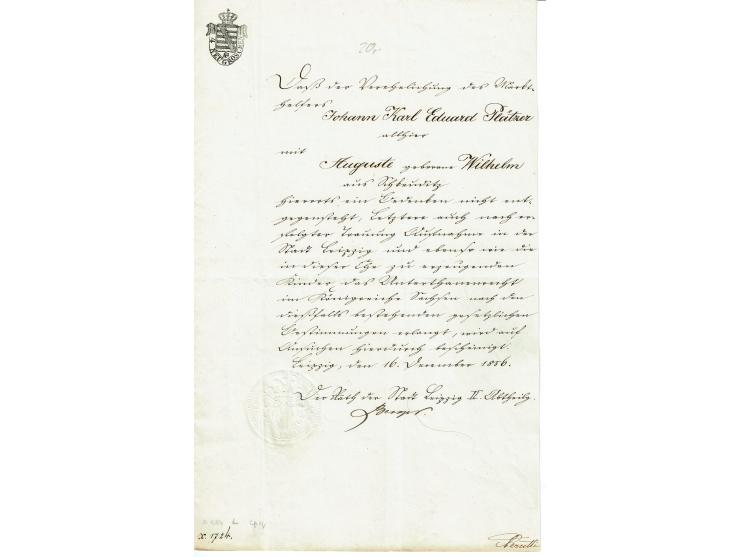 NEUGROSCHEN
20,-
Daß der Verehelichung des Markt-
helfers
Johann Karl Eduard Plätzer
allhier
mit
Auguste geborene Wilhelm
aus Schkeuditz
hierorts ein Bedenken nicht ent-
gegensteht, Letztere auch nach er-
folgter Trauung Aufnahme in der
Stadt Leipzig und ebenso wie die
in dieser Ehe zu erzeugenden
Kinder das Unterthanenrecht
im Königreiche Sachsen nach den
dießfalls bestehenden gesetzlichen
Bestimmungen erlangt, wird auf
Ansuchen hierdurch bescheinigt.
Leipzig, den 16. December 1856.
Der Rath der Stadt Leipzig II. Abtheilg.
x. 1724.